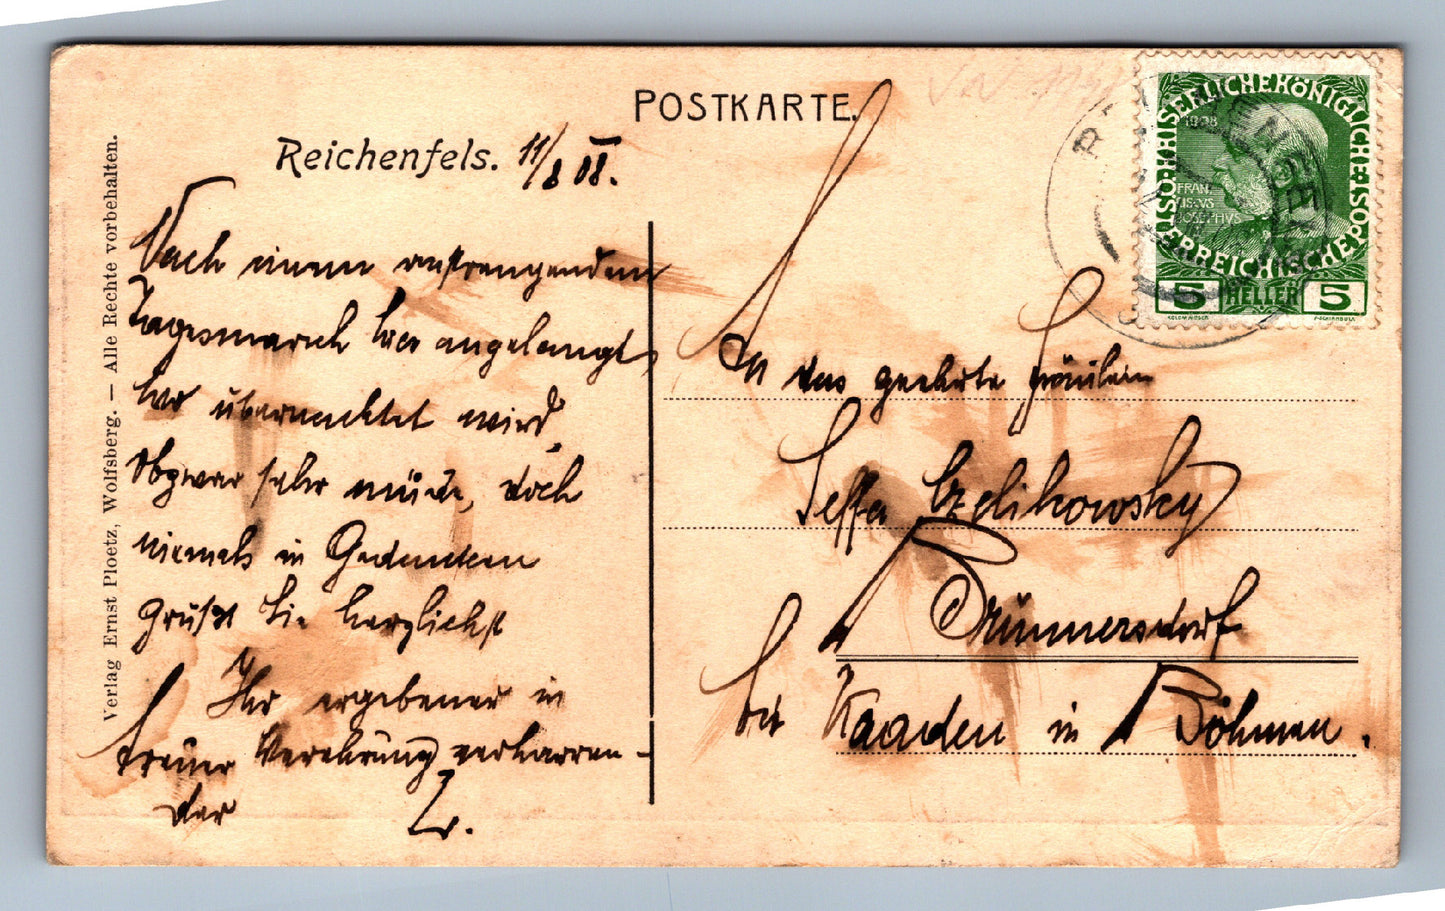 POSTKARTE.
Reichenfels. 11/8 08.
Nach einem anstrengenden
Tagesmarsch hier angelangt,
wo übernachtet wird,
Obzwar sehr müde, doch
niemals in Gedanken
Grüßt Sie herzlichst
Ihr ergebener in
treuer Verehrung verharren-
der L.
An das geehrte Fräulein
Seffa Czelikowsky
Brünnersdorf
bei Kaaden in Böhmen.
Verlag Ernst Ploetz, Wolfsberg. — Alle Rechte vorbehalten.
KAISERLICHE KÖNIGLICHE ÖSTERREICHISCHE POST
1908
FRANCISCVS
JOSEPHVS
5 HELLER 5